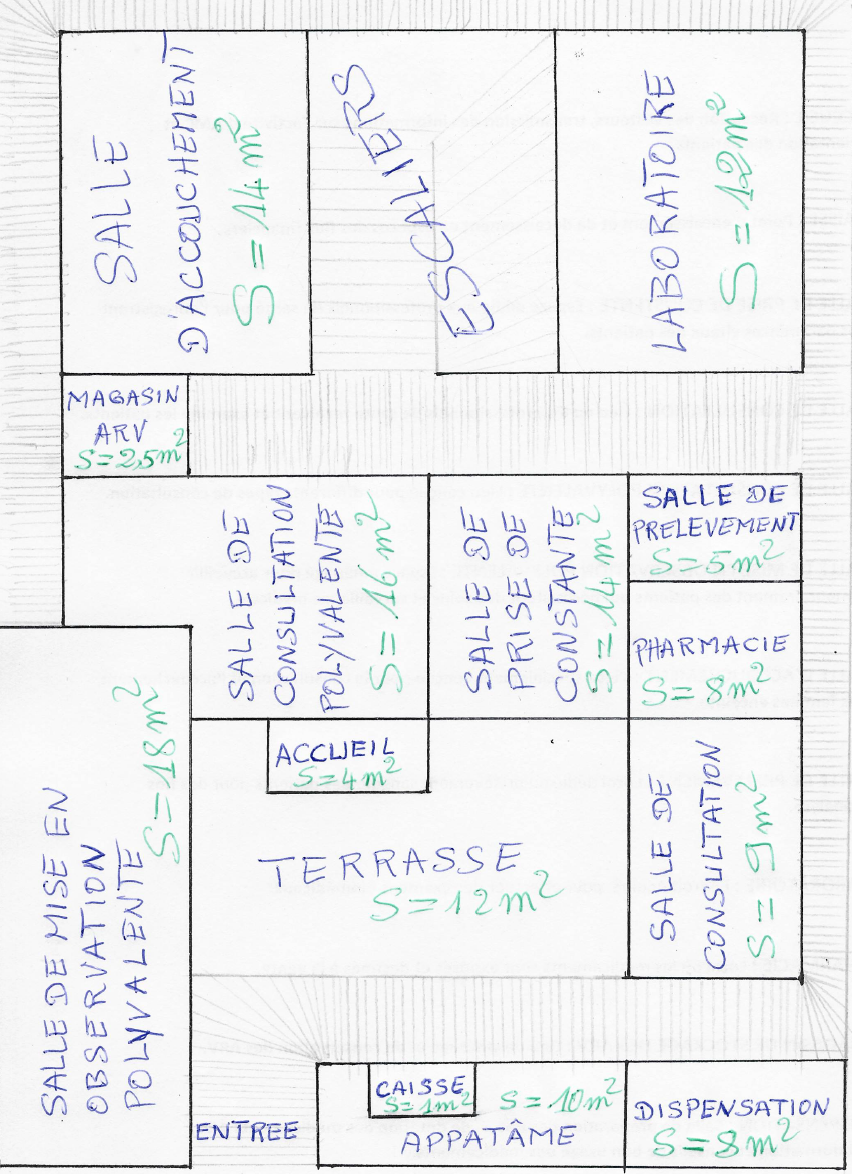 SALLE
D'ACCOUCHEMENT
S = 14 m²
ESCALIERS
LABORATOIRE
S = 12 m²
MAGASIN
ARV
S = 2,5 m²
SALLE DE
CONSULTATION
POLYVALENTE
S = 16 m²
SALLE DE
PRISE DE
CONSTANTE
S = 14 m²
SALLE DE
PRELEVEMENT
S = 5 m²
PHARMACIE
S = 8 m²
ACCUEIL
S = 4 m²
SALLE DE MISE EN
OBSERVATION
POLYVALENTE
S = 18 m²
TERRASSE
S = 12 m²
SALLE DE
CONSULTATION
S = 9 m²
ENTREE
CAISSE
S = 1 m²
S = 10 m²
APPATÂME
DISPENSATION
S = 8 m²